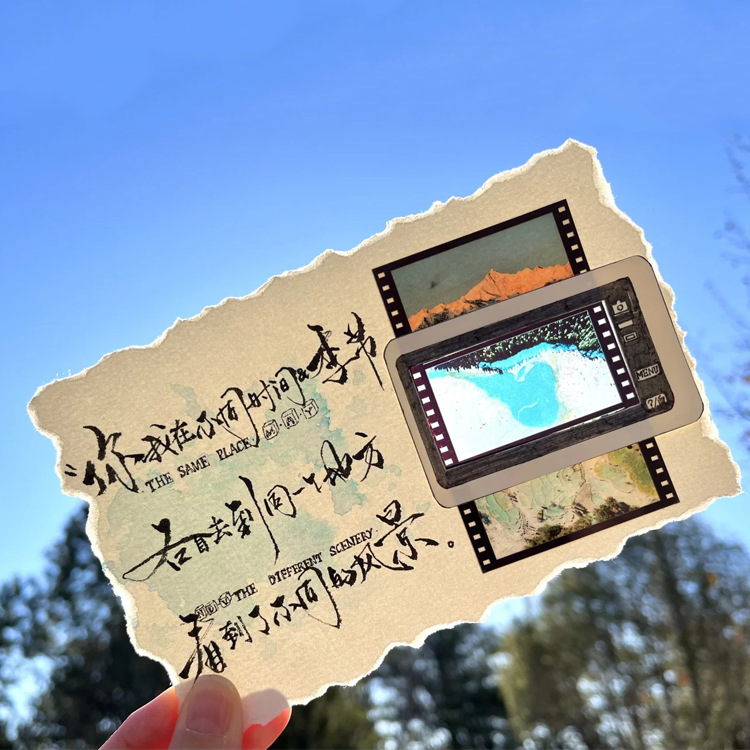 “你我在不同时间&季节
THE SAME PLACE, M·A·Y
各自去到同一个地方
THE DIFFERENT SCENERY.
看到了不同的风景。
MENU